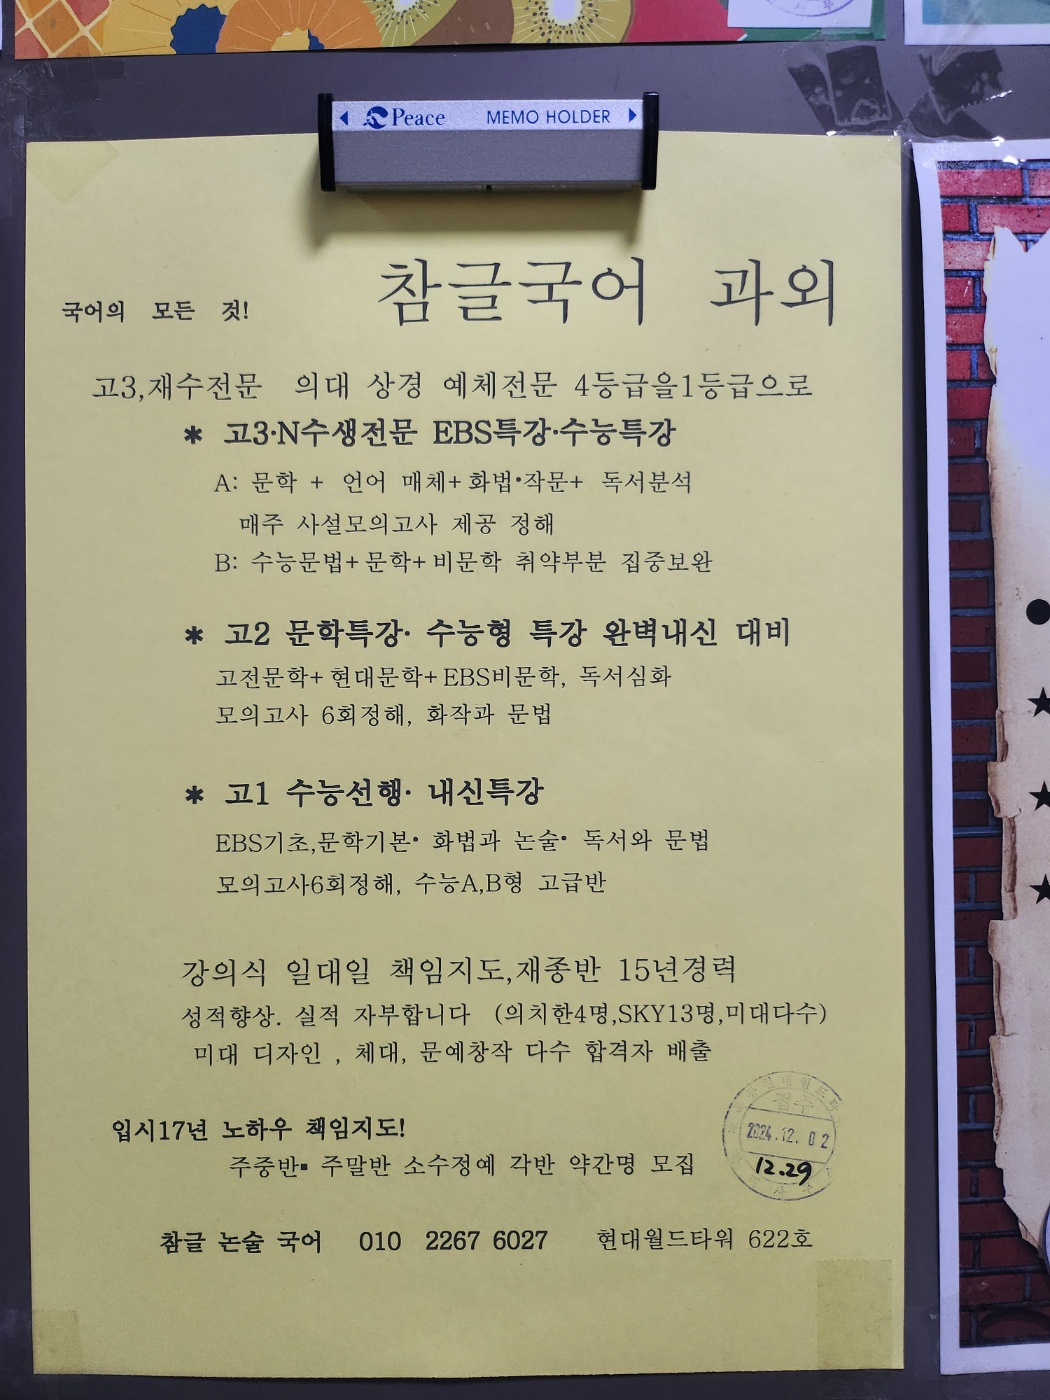 Peace MEMO HOLDER
국어의 모든 것!
참글국어 과외
고3,재수전문 의대 상경 예체전문 4등급을1등급으로
* 고3·N수생전문 EBS특강·수능특강
A: 문학 + 언어 매체+ 화법·작문+ 독서분석
매주 사설모의고사 제공 정해
B: 수능문법+ 문학+ 비문학 취약부분 집중보완
* 고2 문학특강· 수능형 특강 완벽내신 대비
고전문학+ 현대문학+ EBS비문학, 독서심화
모의고사 6회정해, 화작과 문법
* 고1 수능선행· 내신특강
EBS기초,문학기본· 화법과 논술· 독서와 문법
모의고사6회정해, 수능A,B형 고급반
강의식 일대일 책임지도,재종반 15년경력
성적향상. 실적 자부합니다 (의치한4명,SKY13명,미대다수)
미대 디자인 , 체대, 문예창작 다수 합격자 배출
입시17년 노하우 책임지도!
주중반▪ 주말반 소수정예 각반 약간명 모집
2024.12.02
12.29
참글 논술 국어 010 2267 6027 현대월드타워 622호